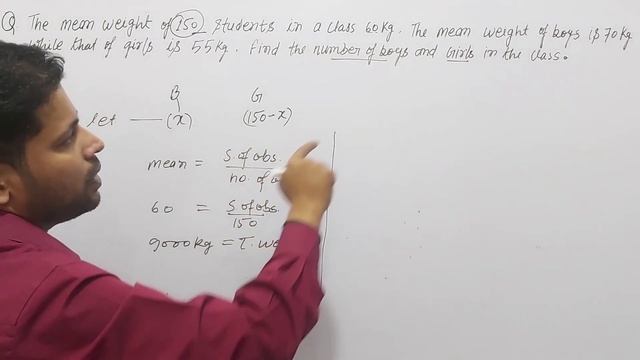 Q The mean weight of 150 students in a class 60kg. The mean weight of boys is 70kg
while that of girls is 55kg. Find the number of boys and Girls in the class.
B G
let — (x) (150-x)
mean = S.of obs.
no. of
60 = S.of obs.
150
9000kg = T.